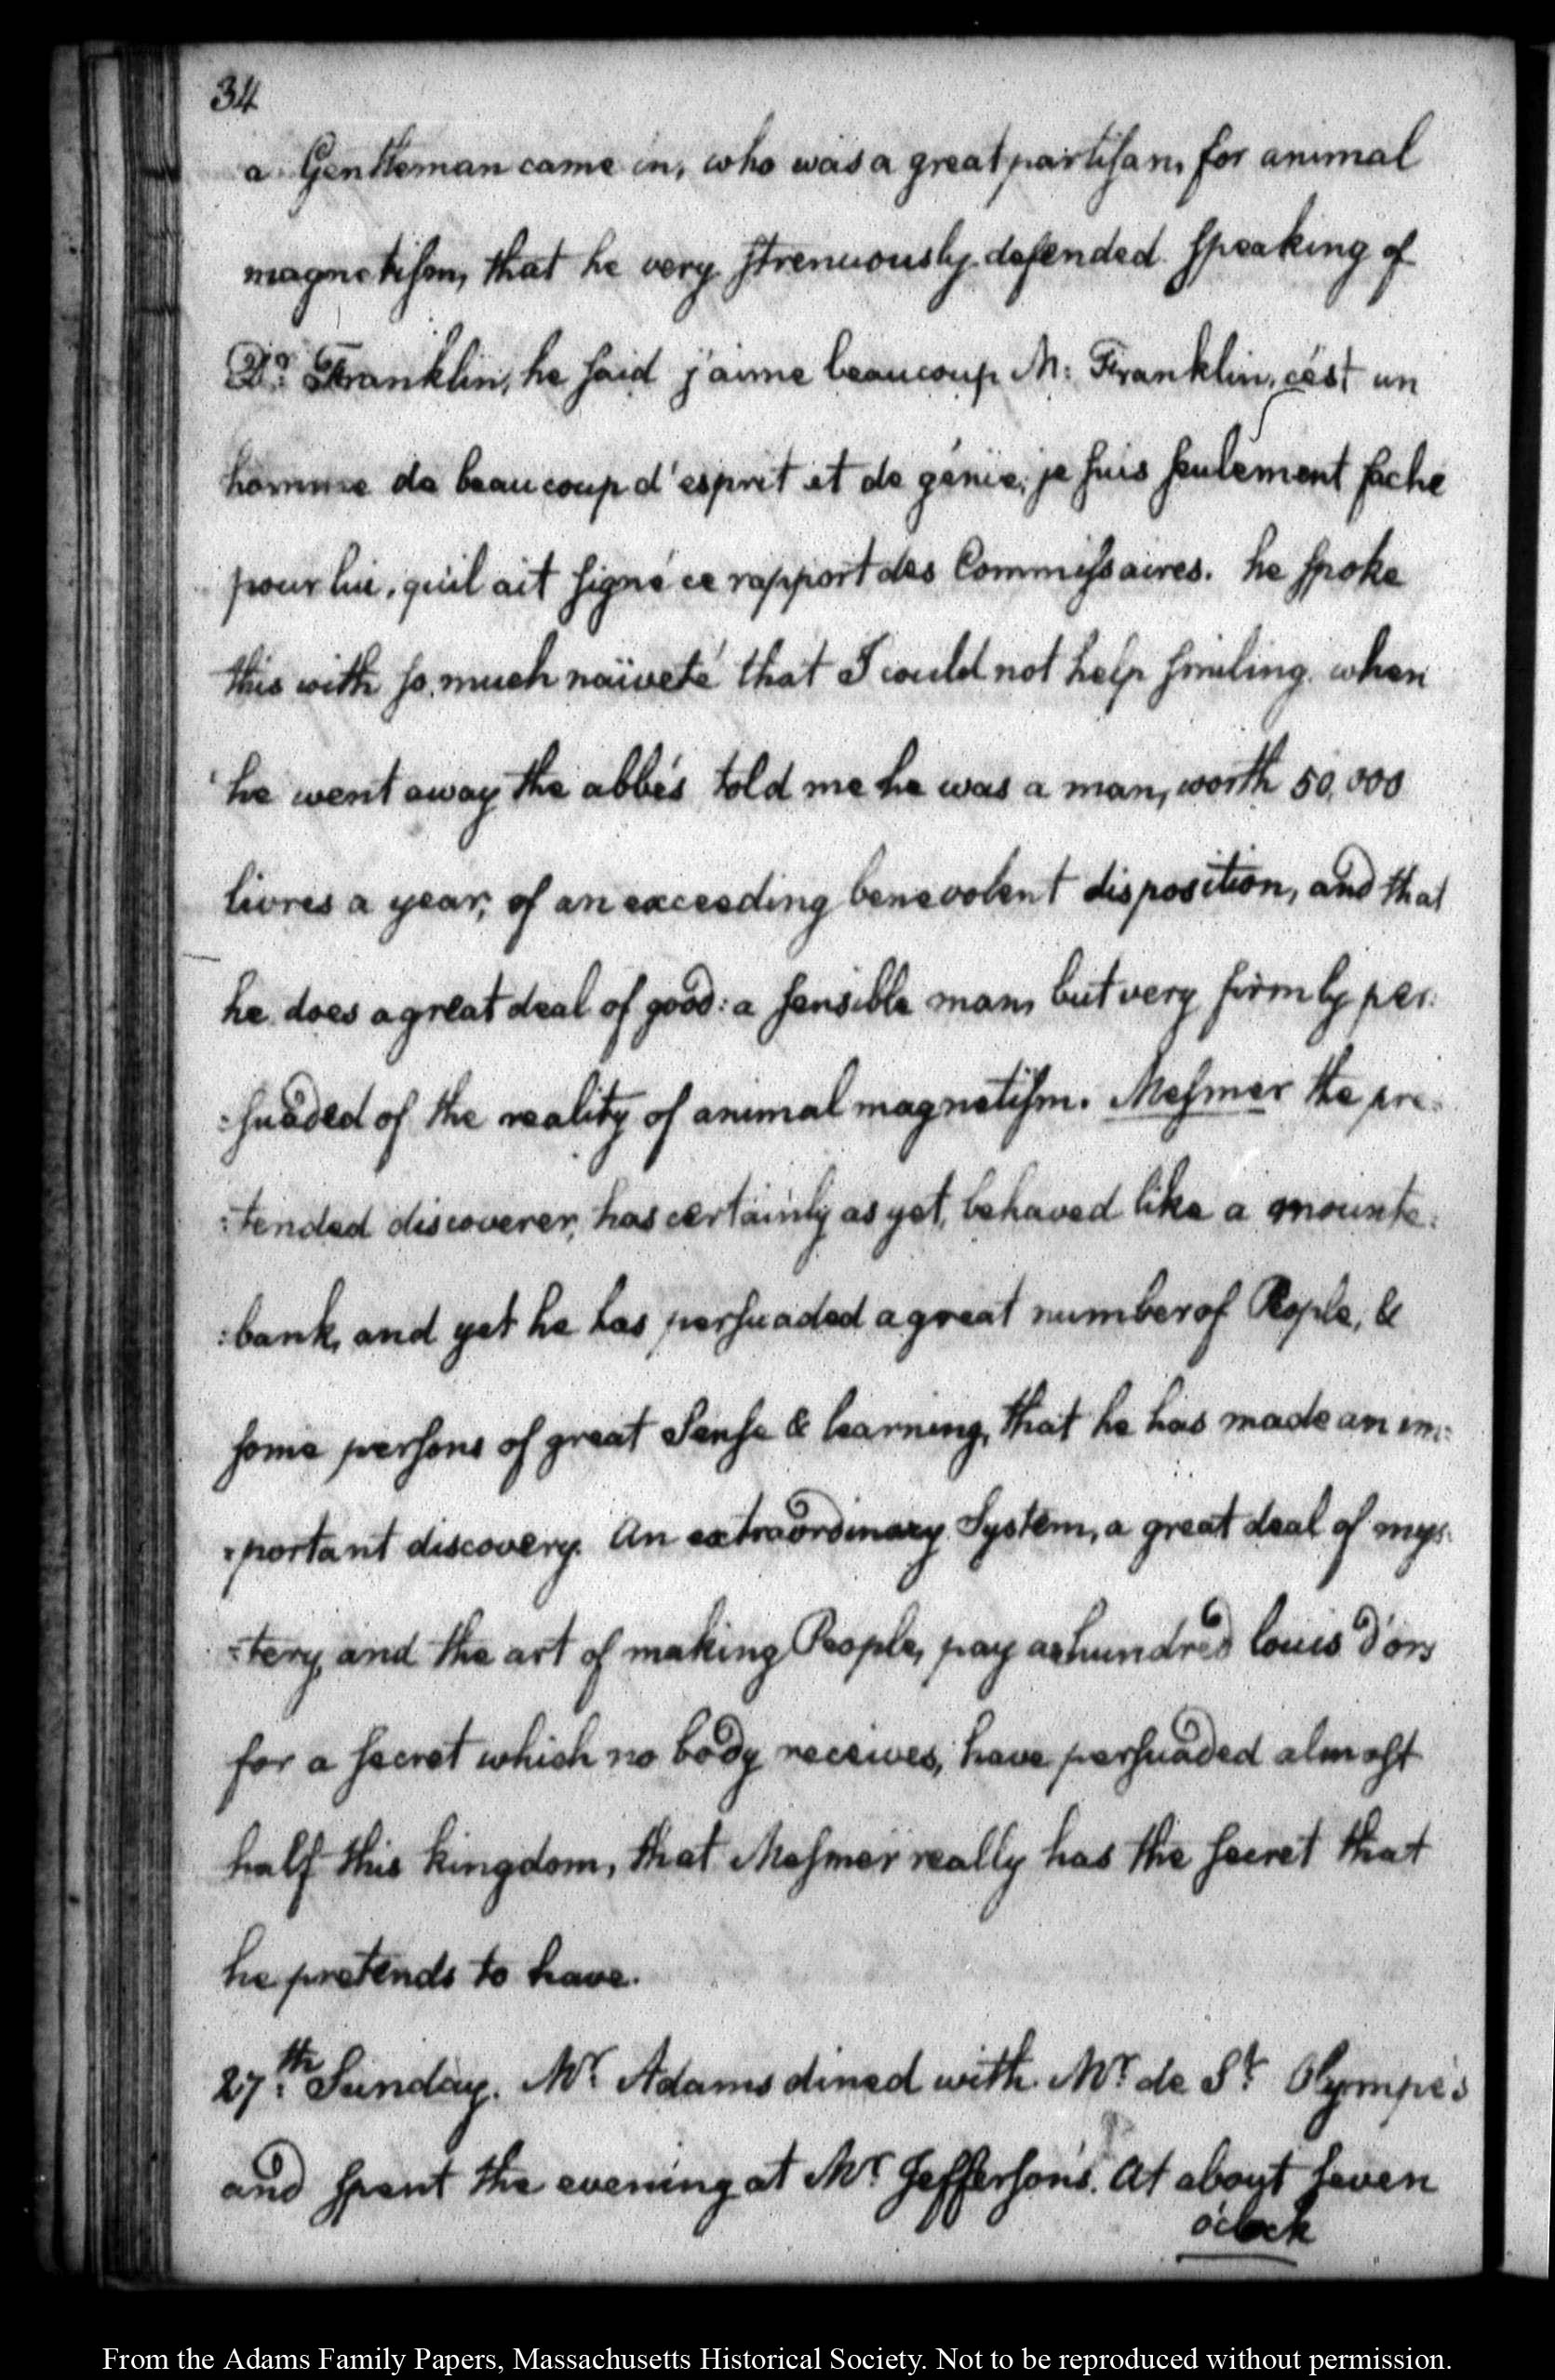 34
a Gentleman came in, who was a great partisan, for animal
magnetism, that he very strenuously defended. speaking of
Dr. Franklin, he said j'aime beaucoup M: Franklin, c'est un
homme de beaucoup d'esprit et de génie; je suis seulement faché
pour lui, qu'il ait signé ce rapport des Commissaires. he spoke
this with so much naïveté that I could not help smiling. when
he went away the abbés told me he was a man, worth 50,000
livres a year, of an exceeding benevolent disposition, and that
he does a great deal of good: a sensible man, but very firmly per:
:suaded of the reality of animal magnetism. Mesmer the pre:
:tended discoverer, has certainly as yet, behaved like a mounte:
:bank, and yet he has persuaded a great number of People, &
some persons of great Sense & learning, that he has made an im:
:portant discovery. An extraordinary System, a great deal of mys:
:tery, and the art of making People, pay a hundred louis d'ors
for a secret which no body receives, have persuaded almost
half this kingdom, that Mesmer really has the secret that
he pretends to have.
27th. Sunday. Mr. Adams dined with Mr. de St. Olympe's
and spent the evening at Mr. Jefferson's. At about seven
o'clock
From the Adams Family Papers, Massachusetts Historical Society. Not to be reproduced without permission.